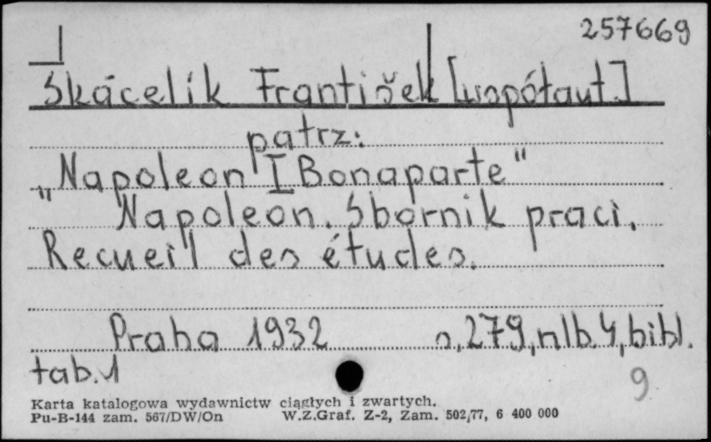 257669
Skácelík František [współaut.]
patrz:
„Napoleon I Bonaparte"
Napoleon. Sborník praci.
Recueil des études.
Praha 1932 s. 279, nlb. 4, bibl.
tab. 1
9
Karta katalogowa wydawnictw ciągłych i zwartych.
Pu-B-144 zam. 567/DW/On W.Z.Graf. Z-2, Zam. 502/77, 6 400 000